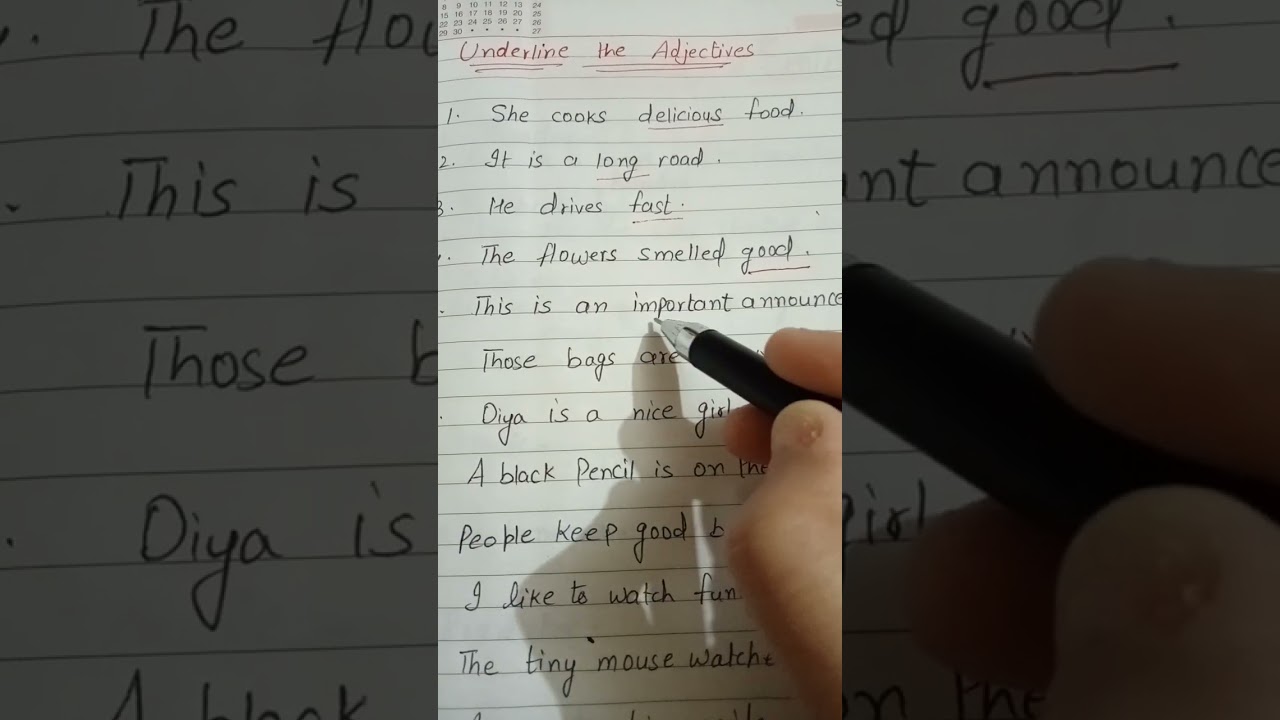 8 9 10 11 12 13 24
15 16 17 18 19 20 25
22 23 24 25 26 27 26
29 30 • • • • • 27
Underline the Adjectives
1. She cooks delicious food.
2. It is a long road.
3. He drives fast.
The flowers smelled good.
This is an important announce
Those bags are
Diya is a nice girl
A black Pencil is on the
People keep good b
I like to watch fun
The tiny mouse watche